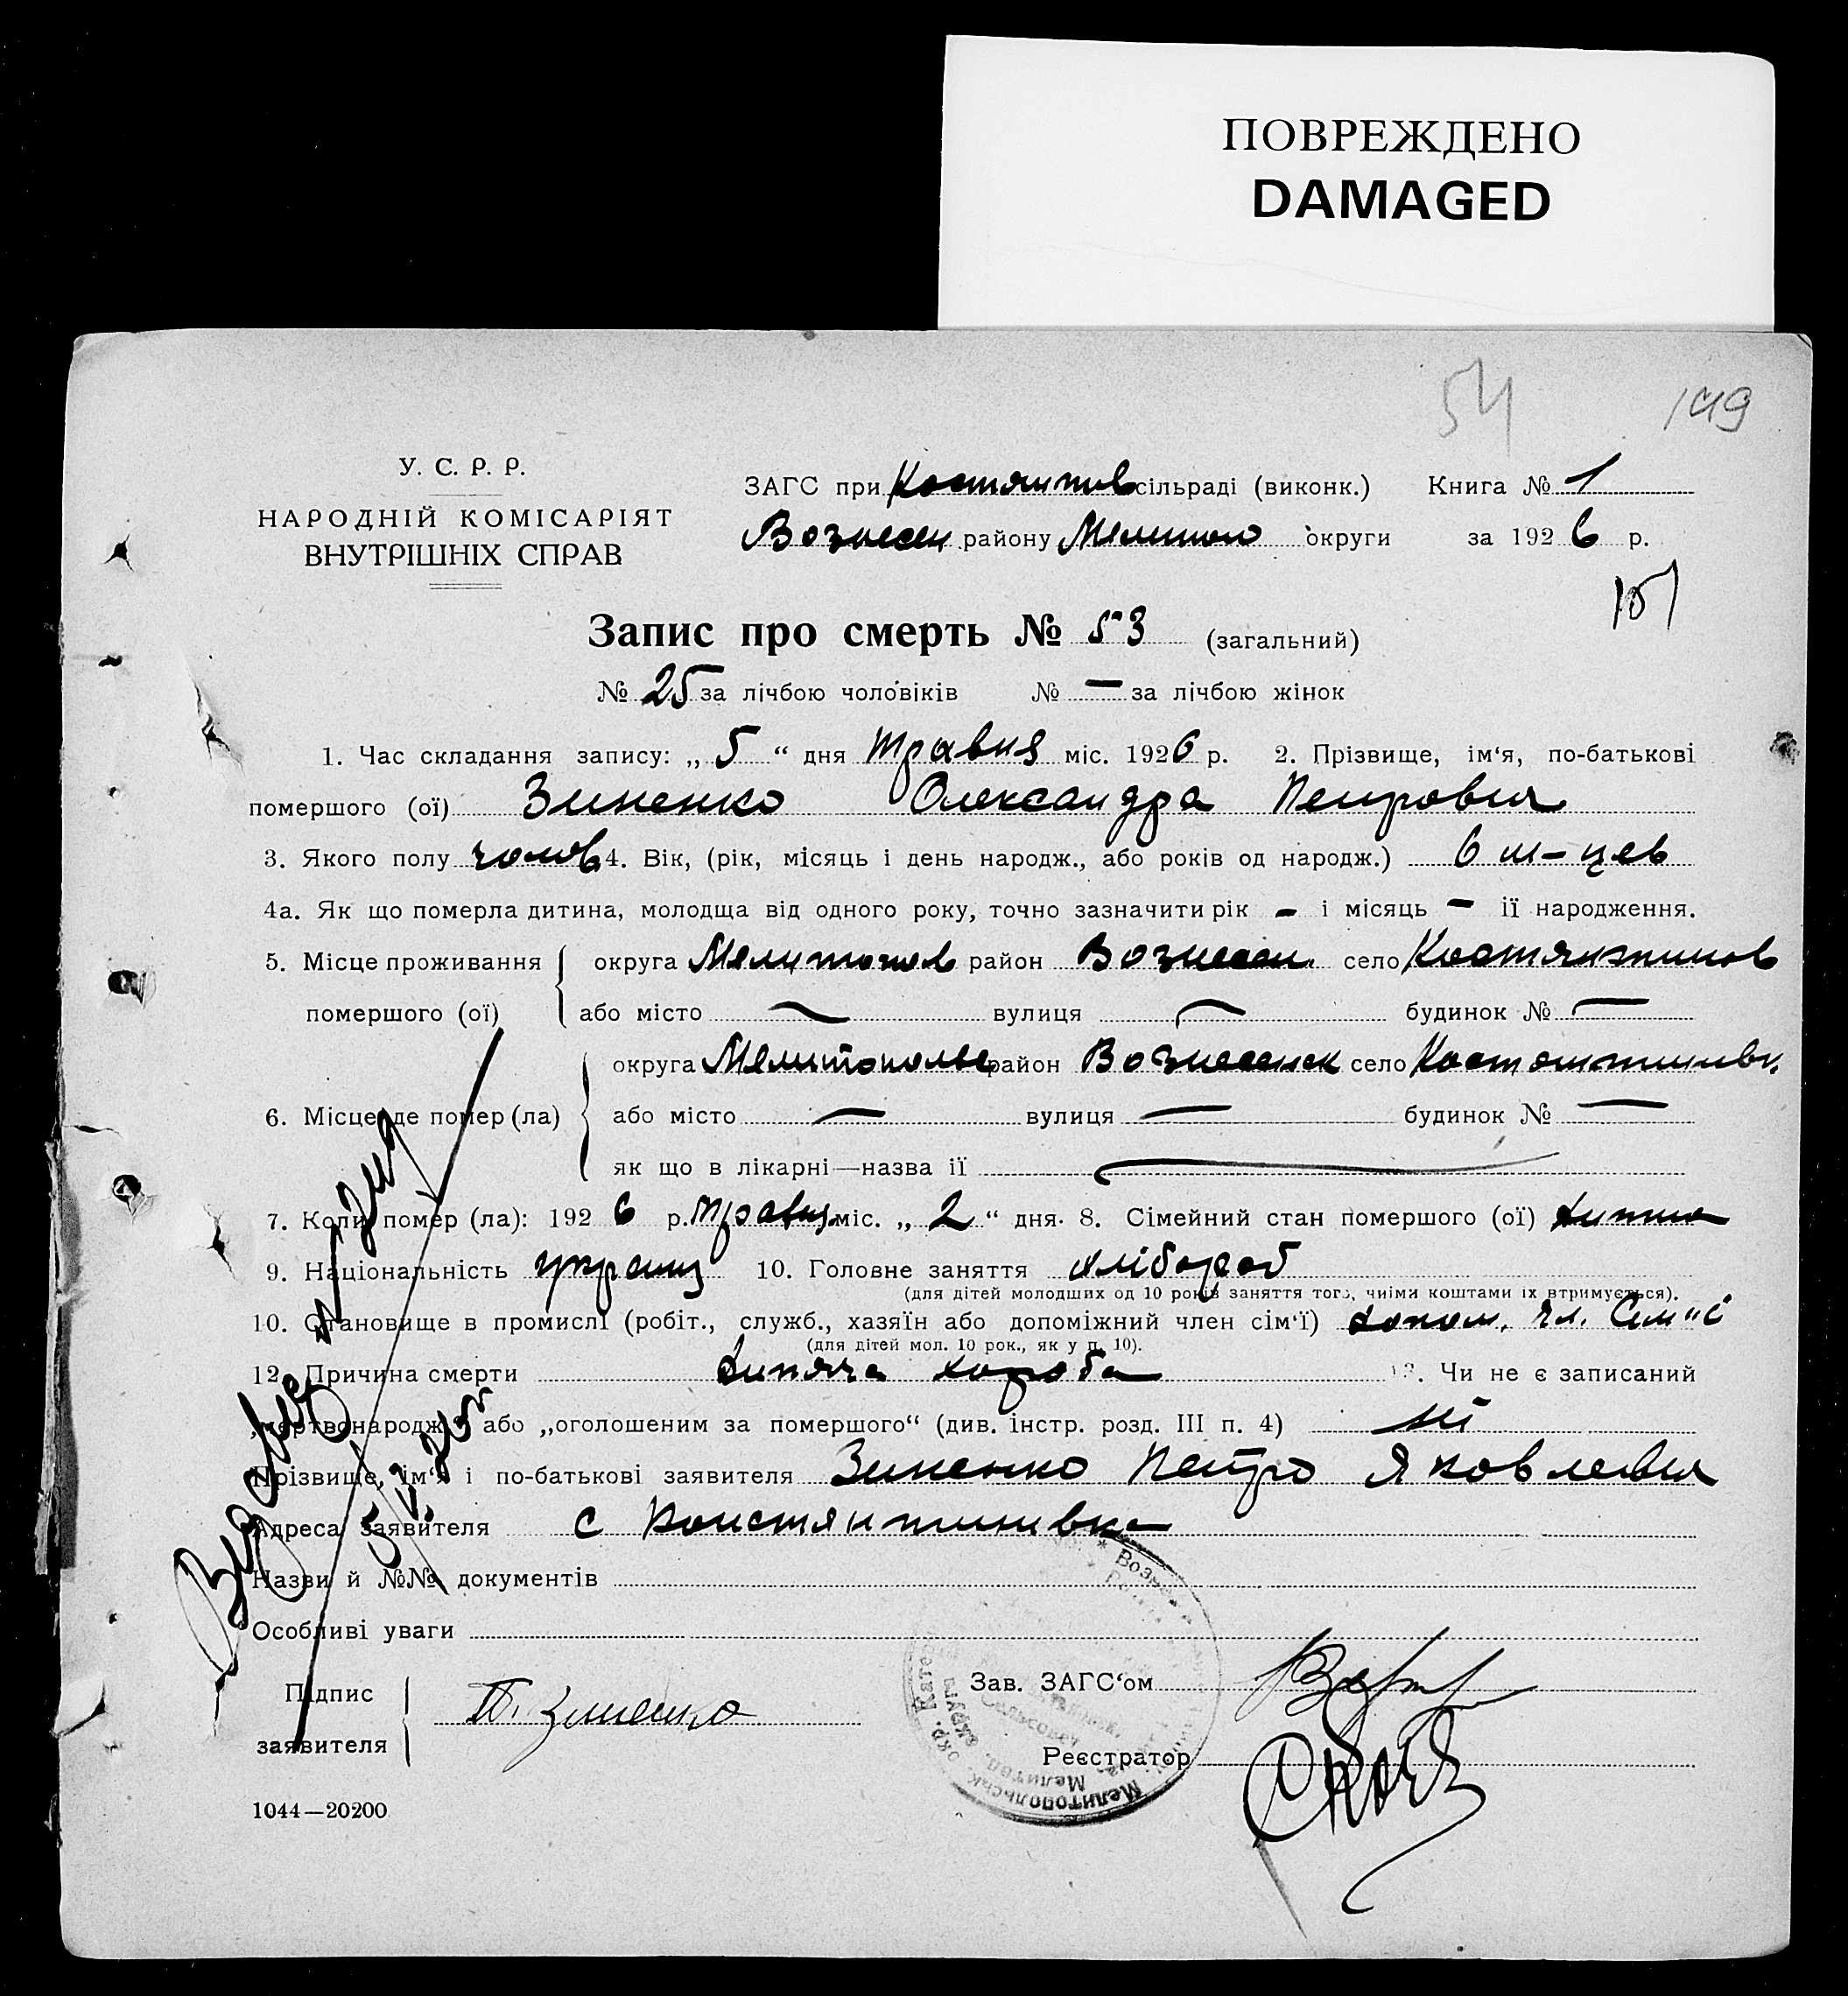 ПОВРЕЖДЕНО
DAMAGED
54 149
У. С. Р. Р.
НАРОДНІЙ КОМІСАРІЯТ
ВНУТРІШНІХ СПРАВ
ЗАГС при Костянтив сільраді (виконк.) Книга № 1
Вознесен району Мелитоп округи за 1926 р.
151
Запис про смерть № 53 (загальний)
№ 25 за лічбою чоловіків № — за лічбою жінок
1. Час складання запису: „ 5 “ дня Травня міс. 1926 р. 2. Прізвище, ім‘я, по-батькові
помершого (ої) Зиненко Олександра Петровича
3. Якого полу чолов 4. Вік, (рік, місяць і день народж., або років од народж.) 6 м-цев
4а. Як що померла дитина, молодща від одного року, точно зазначити рік - і місяць - ії народження.
5. Місце проживання помершого (ої) округа Мелитопол район Вознесен. село Костянтинов
або місто — вулиця — будинок № —
6. Місце де помер (ла) округа Мелитопольс район Вознесенск село Костонтинівк.
або місто — вулиця — будинок № —
як що в лікарні—назва ії —
7. Коли помер (ла): 1926 р. Травня міс. „ 2 “ дня. 8. Сімейний стан помершого (ої) дитина
9. Національність украинц 10. Головне заняття хлібороб
(для дітей молодших од 10 років заняття того, чиїми коштами іх втримується).
10. Становище в промислі (робіт., служб., хазяїн або допоміжний член сім‘ї) допом. чл. Сем"ї
(для дітей мол. 10 рок., як у п. 10).
12. Причина смерти дитяча хороба 13. Чи не є записаний
„мертвонародж.“ або „оголошеним за помершого“ (див. інстр. розд. III п. 4) ні
Прізвище, ім‘я і по-батькові заявителя Зиненко Петро Яковлевич
Адреса заявителя с Константинивка
Назви й №№ документів
Особливі уваги
Підпис заявителя П. Зиненко
Зав. ЗАГС‘ом
Реєстратор
1044—20200